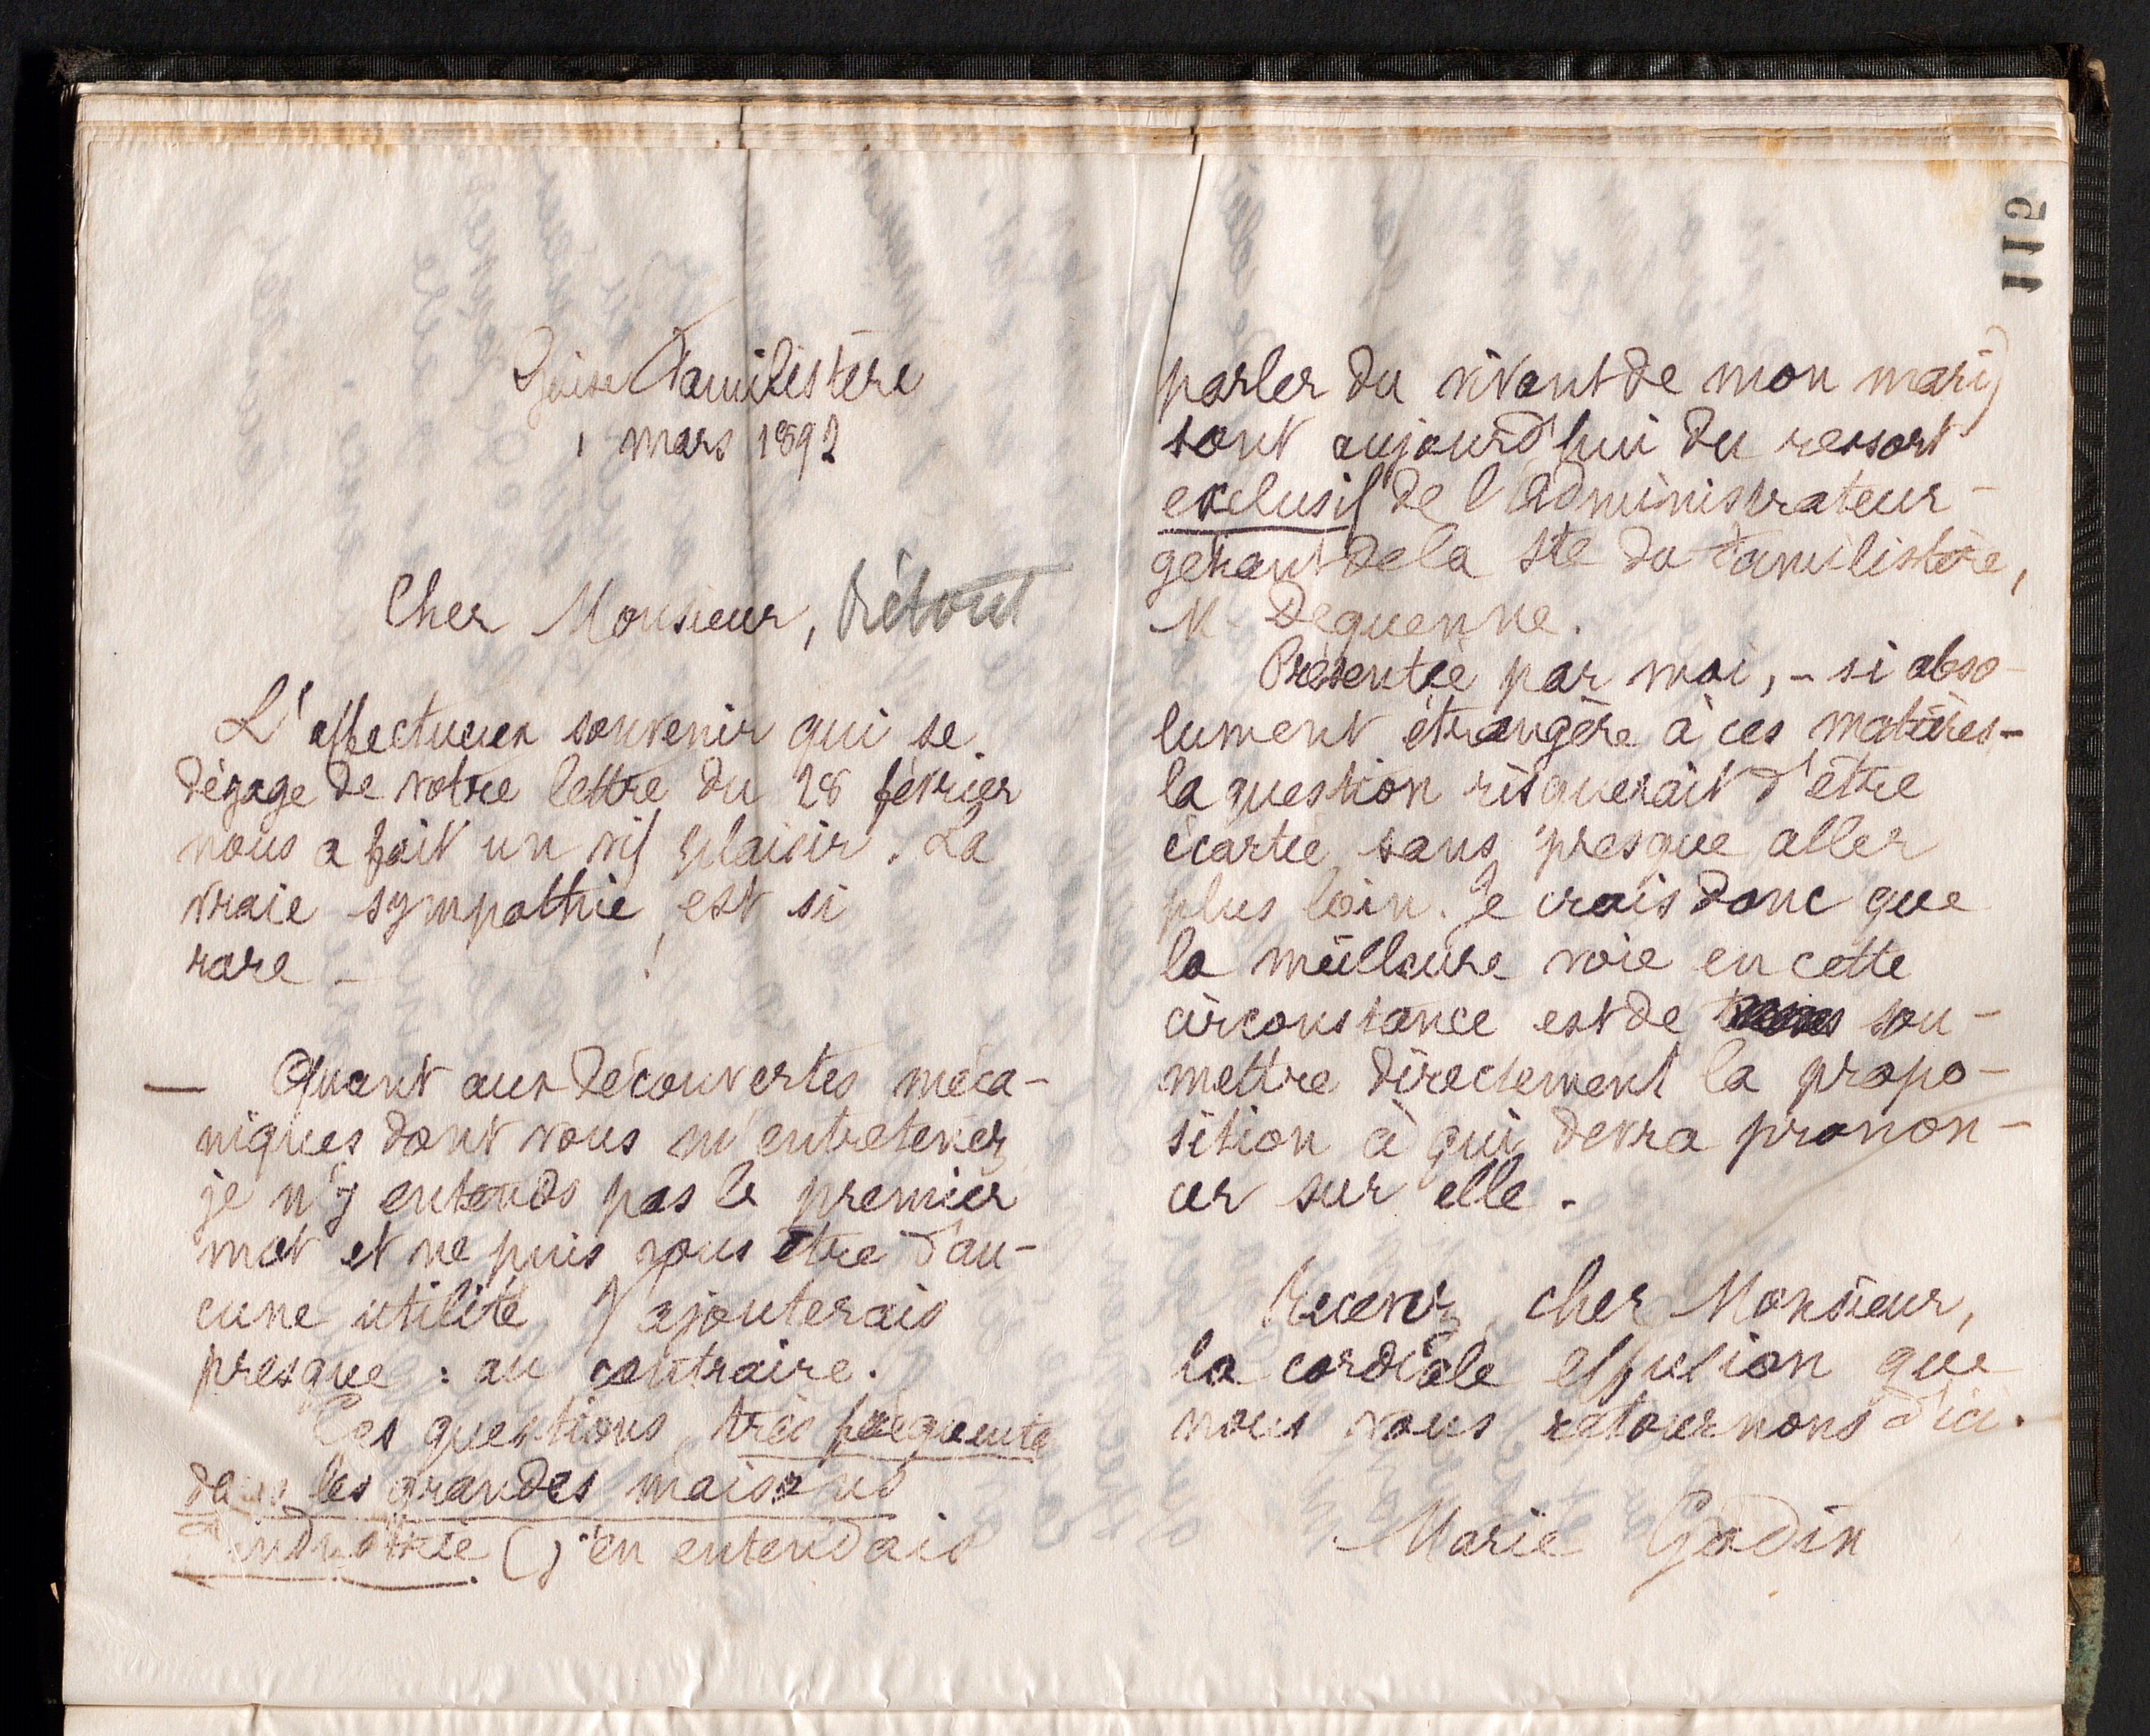 115
Guise Familistère
1 mars 1892
Cher Monsieur, Piétout
L'affectueux souvenir qui se
dégage de votre lettre du 28 février
nous a fait un vif plaisir. La
vraie sympathie est si
rare - !
— Quant aux découvertes méca-
niques dont vous m'entretenez
je n'y entends pas le premier
mot et ne puis vous être d'au-
cune utilité J'ajouterais
presque : au contraire.
Ces questions, très fréquentes
dans les grandes maisons
d'industrie (j'en entendais
parler du vivant de mon mari)
sont aujourd'hui du ressort
exclusif de l'Administrateur-
gérant de la Sté du Familistère,
M. Dequenne.
Présentée par moi, - si abso-
lument étrangère à ces matières -
la question risquerait d'être
écartée sans presque aller
plus loin. Je crois donc que
la meilleure voie en cette
circonstance est de sou-
mettre directement la propo-
sition à qui devra pronon-
cer sur elle.
Recevez, cher Monsieur,
la cordiale effusion que
nous vous retournons d'ici.
Marie Godin